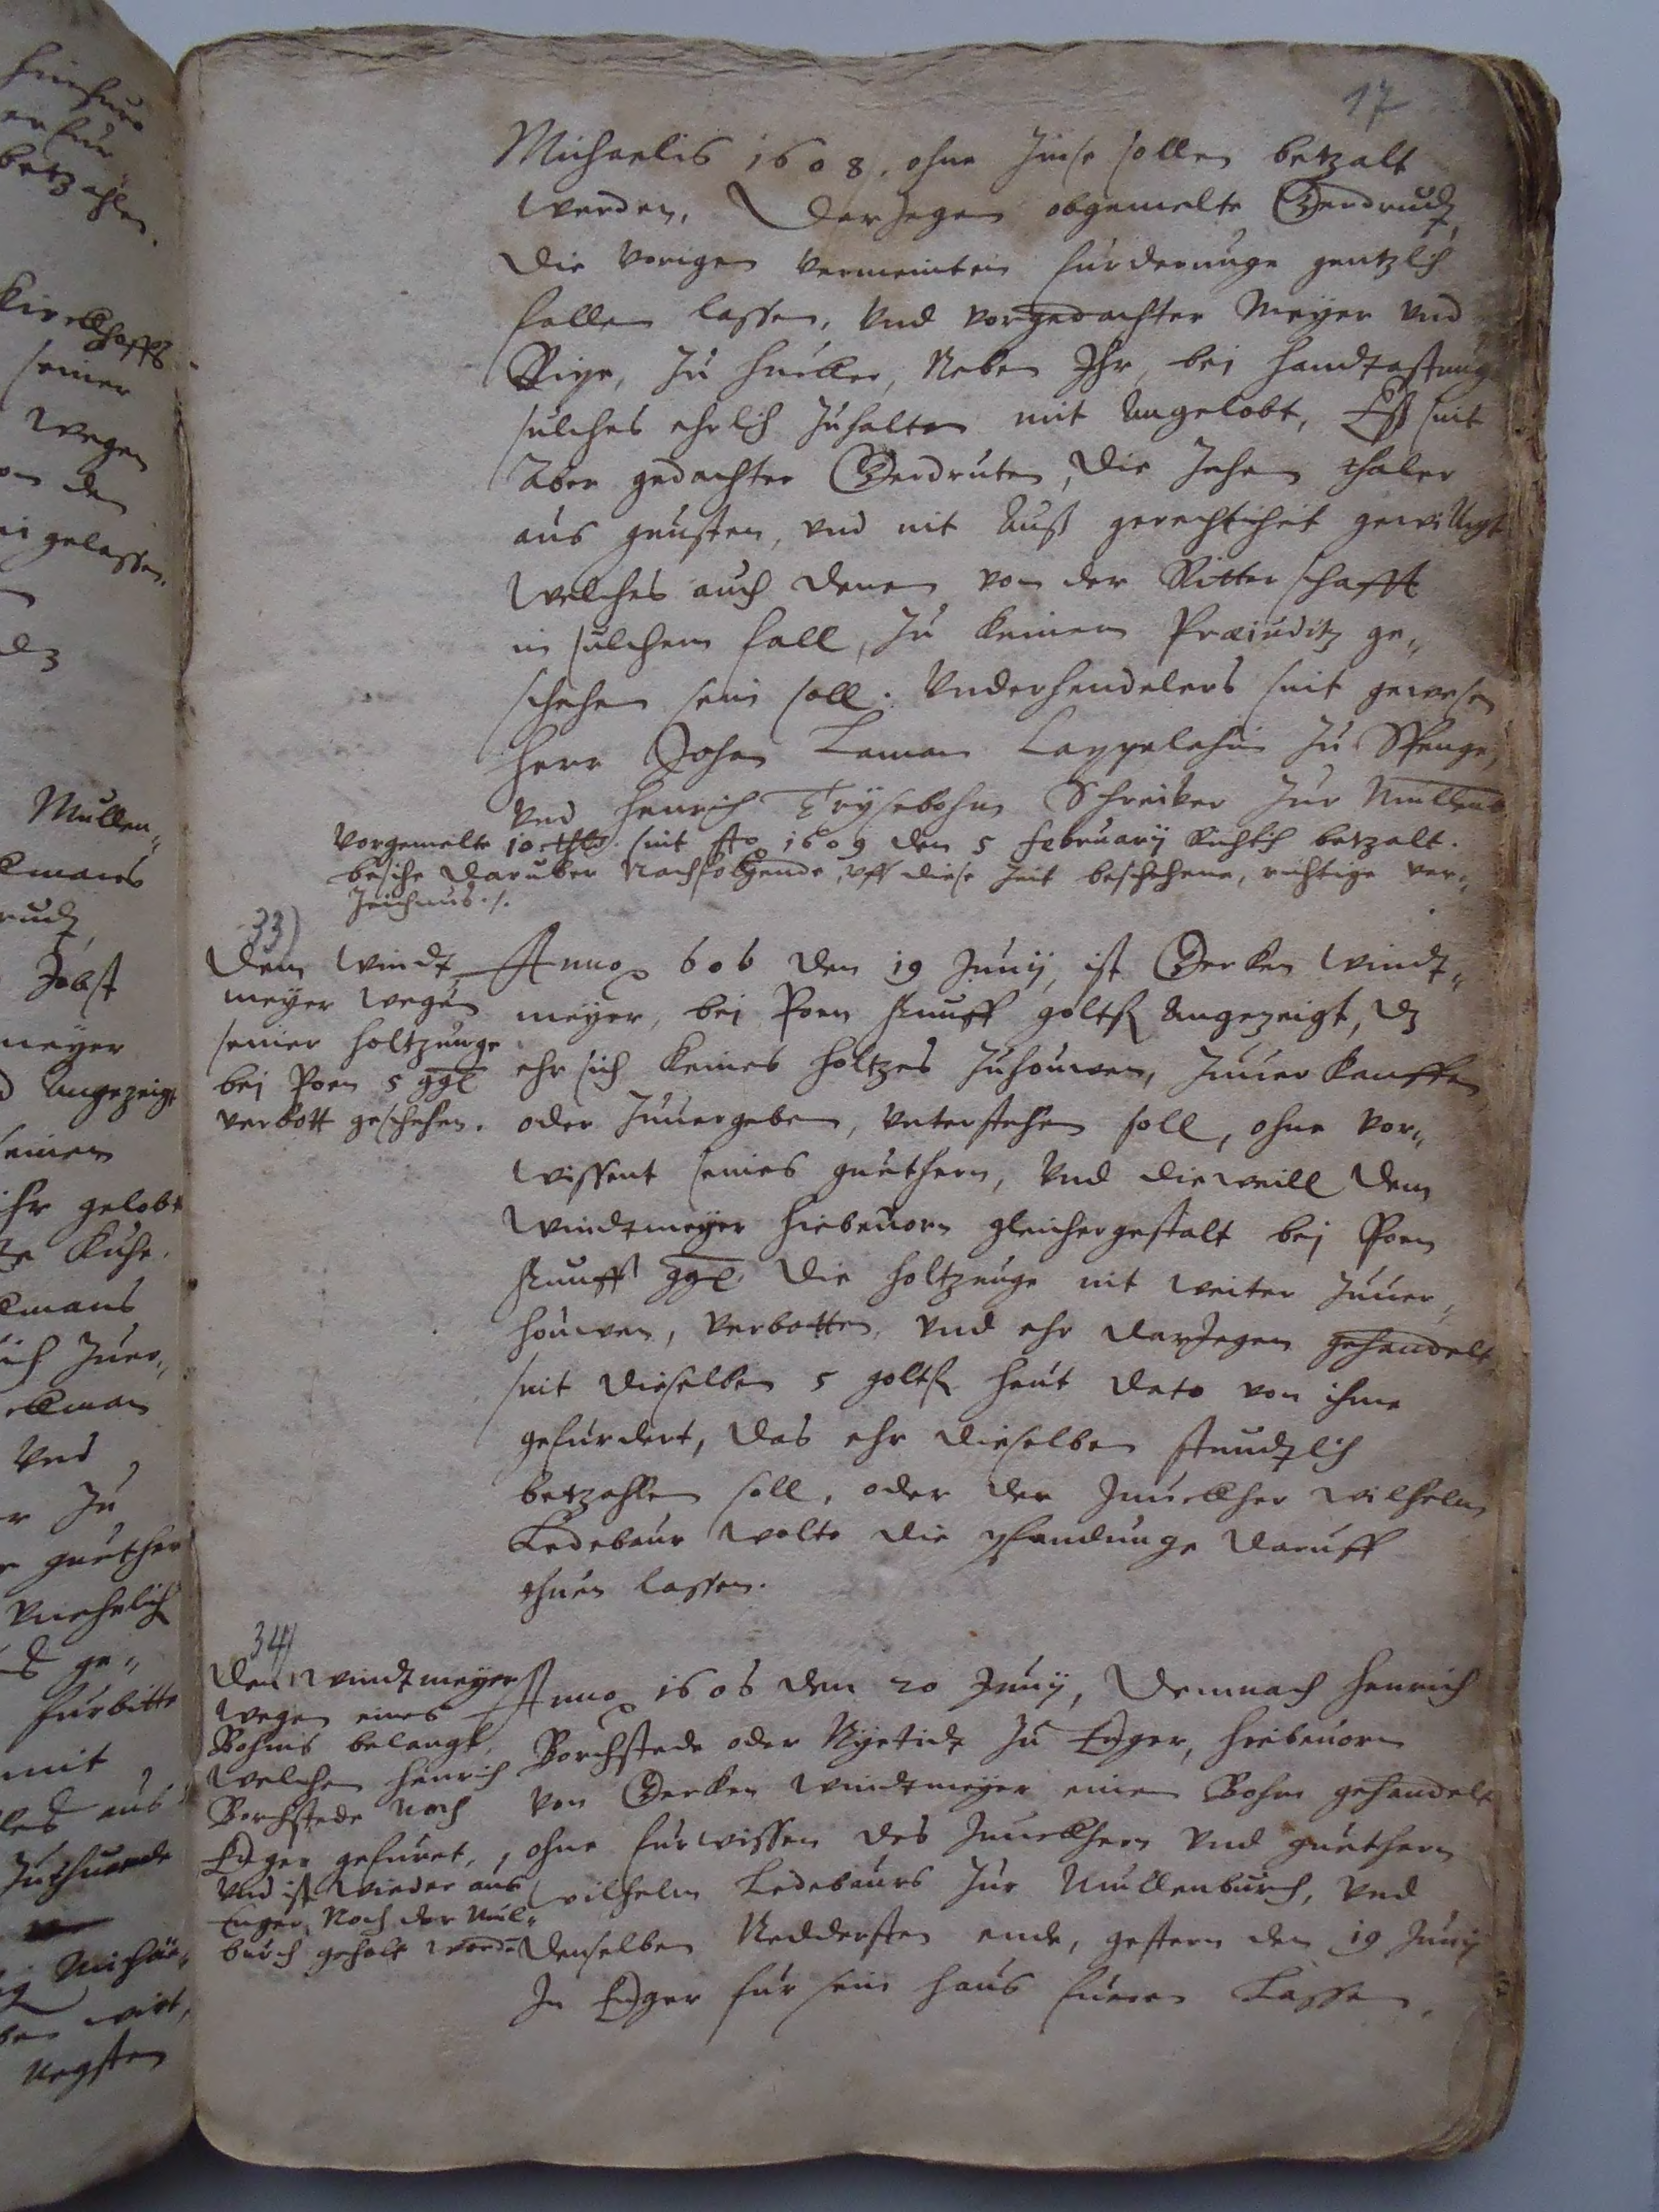 17
Michaelis 1608, ohne Zinse sollen betzalt
werden, Derjegen obgemelte Gerdrudt,
die vorigen vermeinten furderunge gentzlich
fallen lassen, Vnd vorgedachter Meyer vnd
zu Hucker, Neben Ihr, bei handtastung
sulches ehrlich zuhalten mit Angelobt, Eß sint
Aber gedachter Gerdruten, die Zehen thaler
aus gunsten, vnd nit Auß gerechticheit gewilligt
Welches auch denen von der Ritterschafft
in sulchem fall, zu keinem Præiuditz ge„
schehen sein soll. Vnderhendelers sint gewesen
Herr Johan Laman Cappelahn zu Spenge,
vnd Henrich Schreiber zur Mullenb
Vorgemelte 10 thlr. sint Ao 1609 den 5 February Richtich betzalt.
besihe daruber Nachfolgende, vff diese Zeit beschehene, richtige ver„
Zeichnus ./.
33)
Dem Windt„
meyer wegen
seiner Holtzunge
bei Poen 5 ggl
verbott geschehen.
Anno 606 den 19 Junij, ist Gerken Windt„
meyer, bei Poen funff goltfl Angezeigt, dz
ehr sich keines Holtzes zuhouwen, zuuerkauffen
oder zuuergeben, vnterstehen soll, ohne vor„
wissent seines guethern, Vnd dieweill dem
Windtmeyer hiebeuorn gleichergestalt bei Poen
funff ggl. die Holtzunge nit weiter zuuer„
houwen, verbotten, vnd ehr darjegen gehandelt
sint dieselben 5 goltfl heut dato von ihme
gefurdert, das ehr dieselben stundtlich
betzahlen soll, oder der Junckher Wilhelm
Ledebaur wolte die pfandunge daruff
thuen lassen.
34)
Den Windtmeyer
wegen eines
Bohms belangt,
welchen Henrich
Borchstede Nach
Enger gefuret,
Vnd ist wieder aus
Enger, Nach der Mul„
burch geholt worden
Anno 1606 den 20 Junij, Demnach Henrich
Borchstede oder Nyetidt zu Enger, hiebeuorn
von Gerken Windtmeyer einen Bohm gehandelt
ohne furwissen des Junckhern vnd guethern
Wilhelm Ledebaurs zur Mullenburch, vnd
denselben Neddersten ende, gestern den 19 Junij
In Enger fur sein haus fueren Lassen.